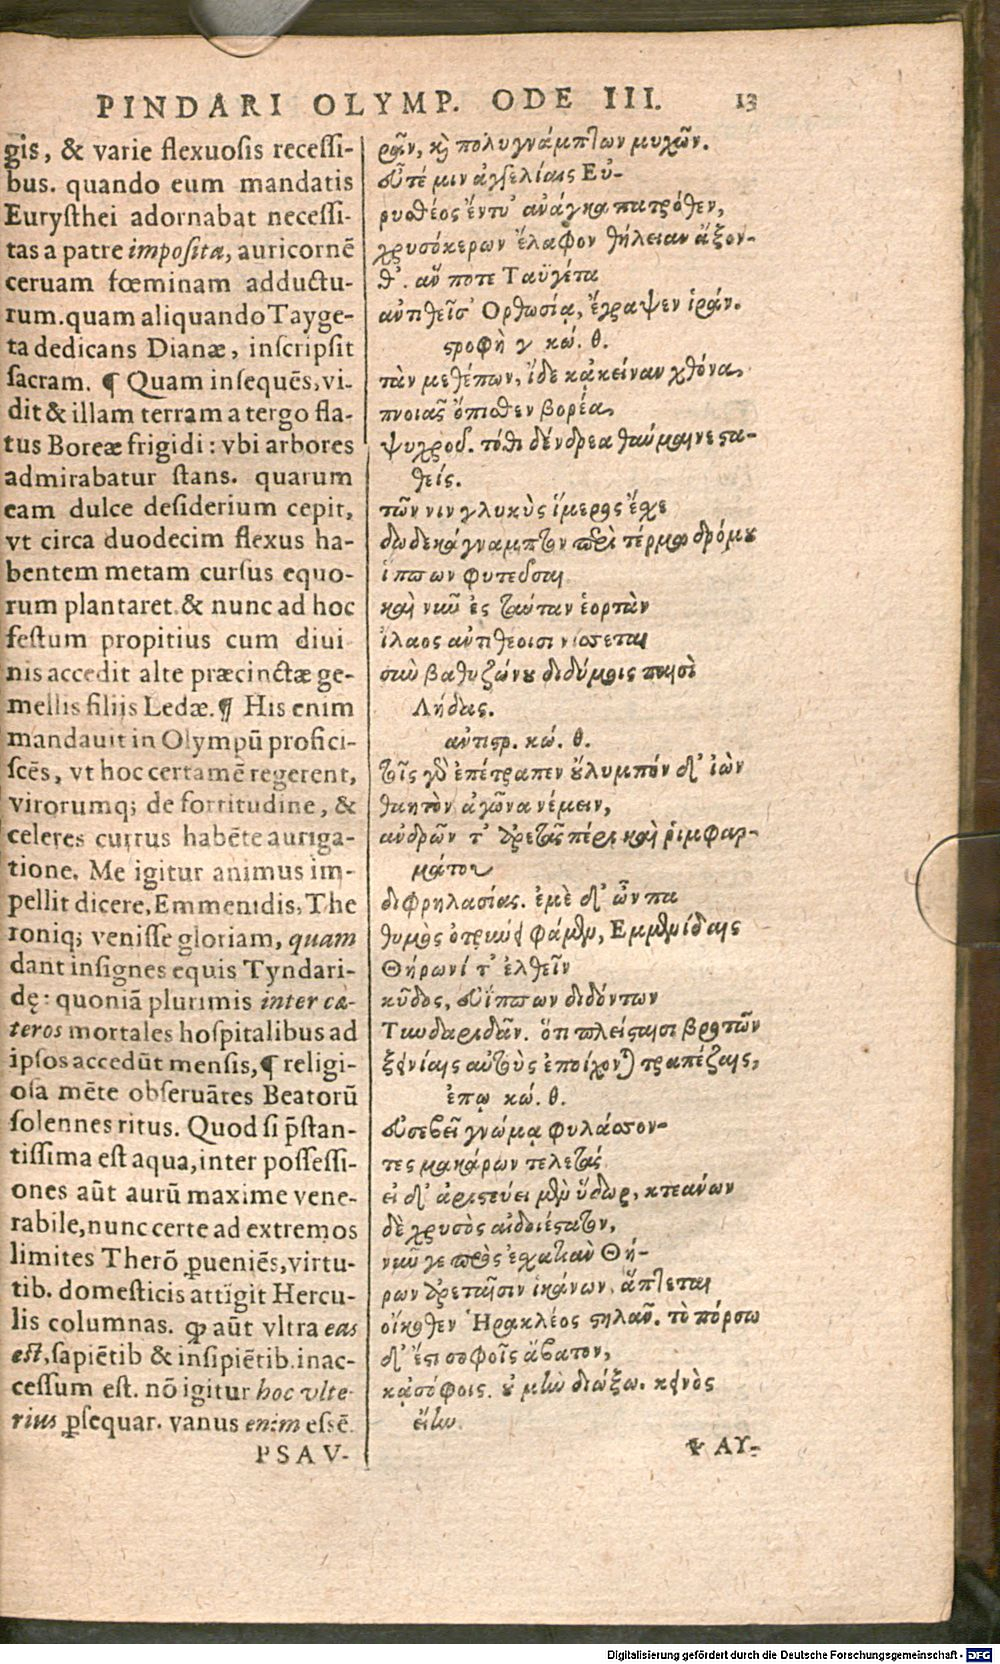 PINDARI OLYMP. ODE III. 13
gis, & varie flexuosis recessi-
bus. quando eum mandatis
Eurysthei adornabat necessi-
tas a patre imposita, auricornē
ceruam fœminam adductu-
rum. quam aliquando Tayge-
ta dedicans Dianæ, inscripsit
sacram. ¶ Quam insequēs, vi-
dit & illam terram a tergo fla-
tus Boreæ frigidi: vbi arbores
admirabatur stans. quarum
eam dulce desiderium cepit,
vt circa duodecim flexus ha-
bentem metam cursus equo-
rum plantaret. & nunc ad hoc
festum propitius cum diui
nis accedit alte præcinctæ ge-
mellis filiis Ledæ. ¶ His enim
mandauit in Olympū profici-
scēs, vt hoc certamē regerent,
virorumq; de fortitudine, &
celeres currus habēte auriga-
tione. Me igitur animus im-
pellit dicere, Emmenidis, The
roniq; venisse gloriam, quam
dant insignes equis Tyndari-
dę: quoniā plurimis inter cæ-
teros mortales hospitalibus ad
ipsos accedūt mensis, ¶ religi-
osa mēte obseruātes Beatorū
solennes ritus. Quod si p̄stan-
tissima est aqua, inter possessi-
ones aūt aurū maxime vene-
rabile, nunc certe ad extremos
limites Therō ꝑueniēs, virtu-
tib. domesticis attigit Hercu-
lis columnas. ꝙ aūt vltra eas
est, sapiētib & insipiētib. inac-
cessum est. nō igitur hoc vlte-
rius ꝑsequar. vanus enim essē.
PSAV-
ρᾶν, καὶ πολυγνάμπτων μυχῶν.
εὖτέ μιν ἀγγελίαις Εὐ-
ρυσθέος ἔντυ' ἀνάγκα πατρόθεν,
χρυσόκερων ἔλαφον θήλειαν ἄξον-
θ'. ἅν ποτε Ταϋγέτα
ἀντιθεῖσ' Ορθωσίᾳ, ἔγραψεν ἱράν.
στροφὴ γ κώ. θ.
τὰν μεθέπων, ἴδε κἀκείναν χθόνα,
πνοιᾶς ὄπιθεν βορέα,
ψυχροῦ. τόθι δένδρεα θαύμαινε στα-
θείς.
τῶν νιν γλυκὺς ἵμερος ἔσχε
δωδεκάγναμπτον περὶ τέρμα δρόμου
ἵππων φυτεῦσαι
καὶ νῦν ἐς ταύταν ἑορτὰν
ἵλαος ἀντιθέοισι νίσσεται
σὺν βαθυζώνου διδύμοις παισὶ
Λήδας.
ἀντιστρ. κώ. θ.
τοῖς γὰρ ἐπέτραπεν οὔλυμπόν δ' ἰὼν
θαητὸν ἀγῶνα νέμειν,
ἀνδρῶν τ' ἀρετᾶς πέρι καὶ ῥιμφαρ-
μάτου
διφρηλασίας. ἐμὲ δ' ὦν πα
θυμὸς ὀτρύνει φάμεν, Εμμενίδαις
Θήρωνί τ' ἐλθεῖν
κῦδος, εὐίππων διδόντων
Τυνδαριδᾶν. ὅτι πλείσταισι βροτῶν
ξεινίαις αὐτοὺς ἐποίχονται τραπέζαις,
ἐπῳ κώ. θ.
εὐσεβεῖ γνώμᾳ φυλάσσον-
τες μακάρων τελετάς
εἰ δ' ἀριστεύει μὲν ὕδωρ, κτεάνων
δὲ χρυσὸς αἰδοιέστατον,
νῦν γε πρὸς ἐσχατιὰν Θή-
ρων ἀρεταῖσιν ἱκάνων, ἅπτεται
οἴκοθεν Ἡρακλέος στηλᾶν. τὸ πόρσω
δ' ἔστι σοφοῖς ἄβατον,
κἀσόφοις. οὐ μὴν διώξω. κεινὸς
εἴην
ΨΑΥ-
Digitalisierung gefördert durch die Deutsche Forschungsgemeinschaft - DFG